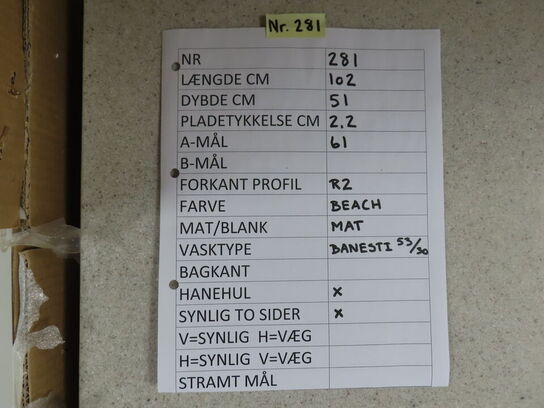 Nr. 281
NR 281
LÆNGDE CM 102
DYBDE CM 51
PLADETYKKELSE CM 2.2
A-MÅL 61
B-MÅL
FORKANT PROFIL R2
FARVE BEACH
MAT/BLANK MAT
VASKTYPE BANESTI 53/30
BAGKANT
HANEHUL x
SYNLIG TO SIDER x
V=SYNLIG H=VÆG
H=SYNLIG V=VÆG
STRAMT MÅL